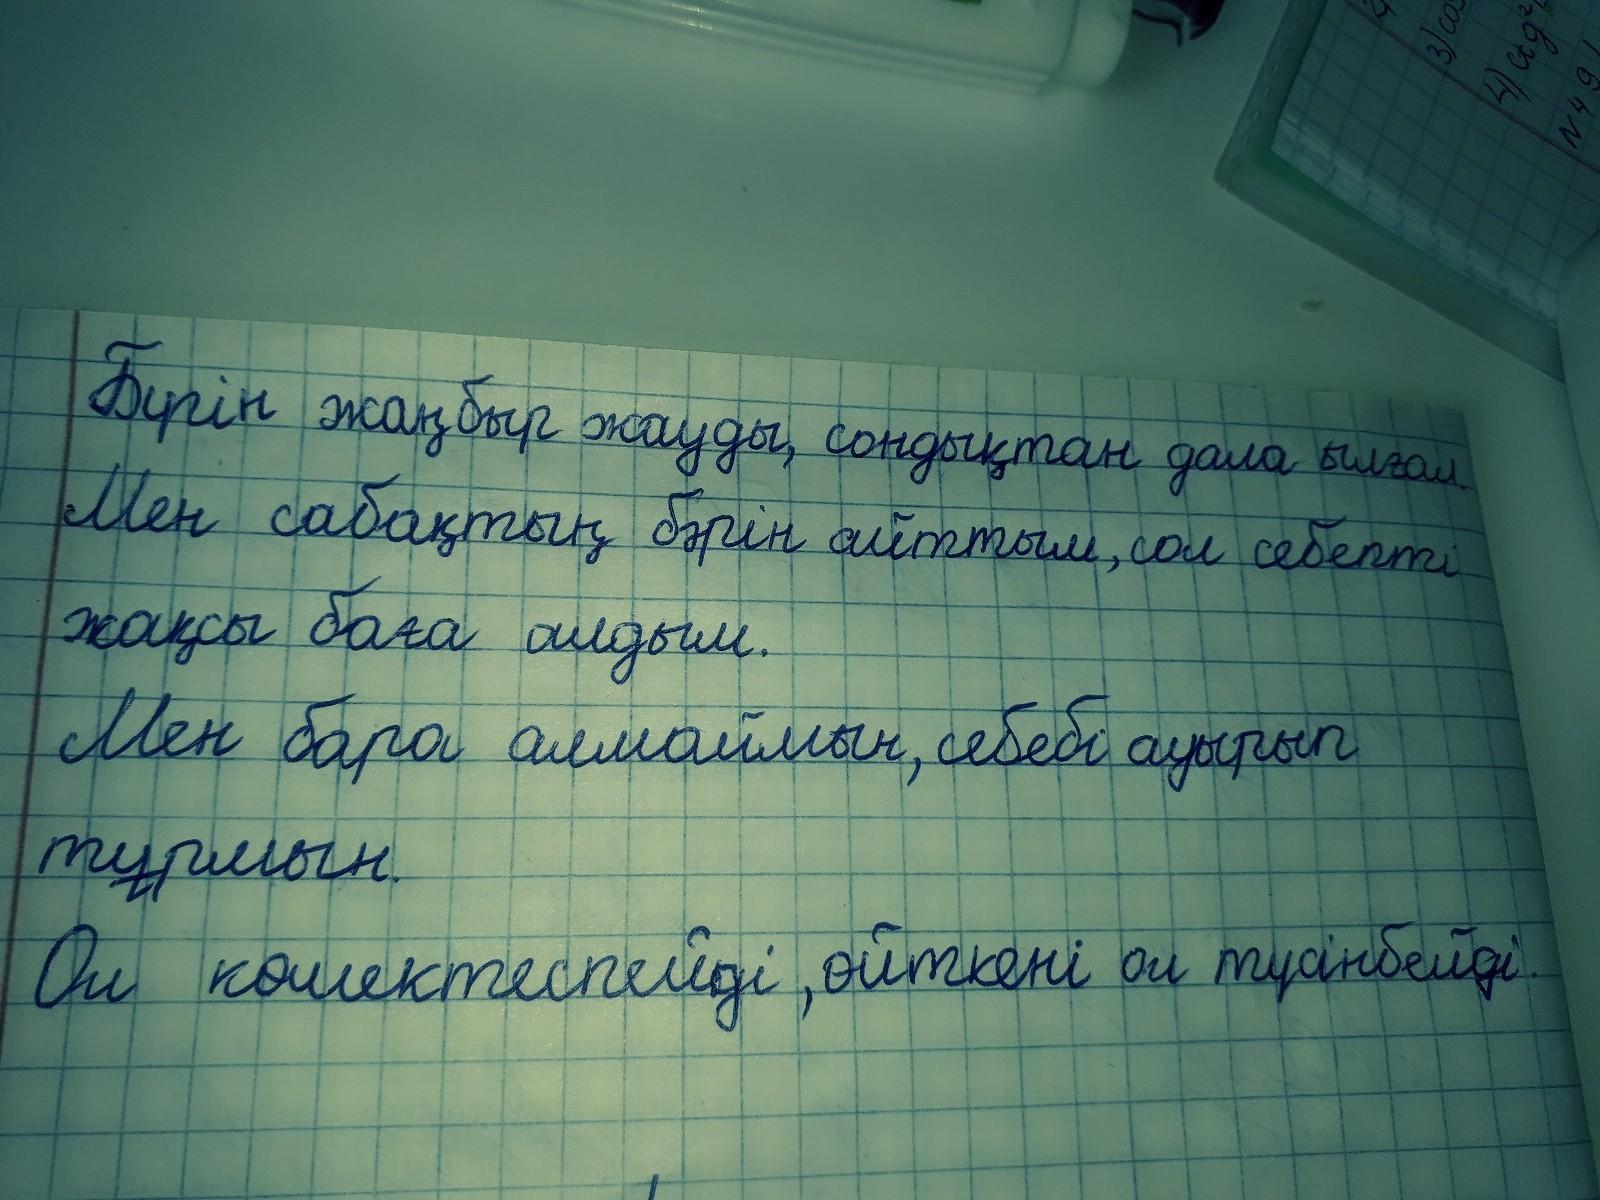 3) cos
4) ctg²
N4 9
Бүгін жаңбыр жауды, сондықтан дала ылғал.
Мен сабақтың бәрін айттым, сол себепті
жақсы баға алдым.
Мен бара алмаймын, себебі ауырып
тұрмын.
Ол көмектеспейді, өйткені ол түсінбейді.